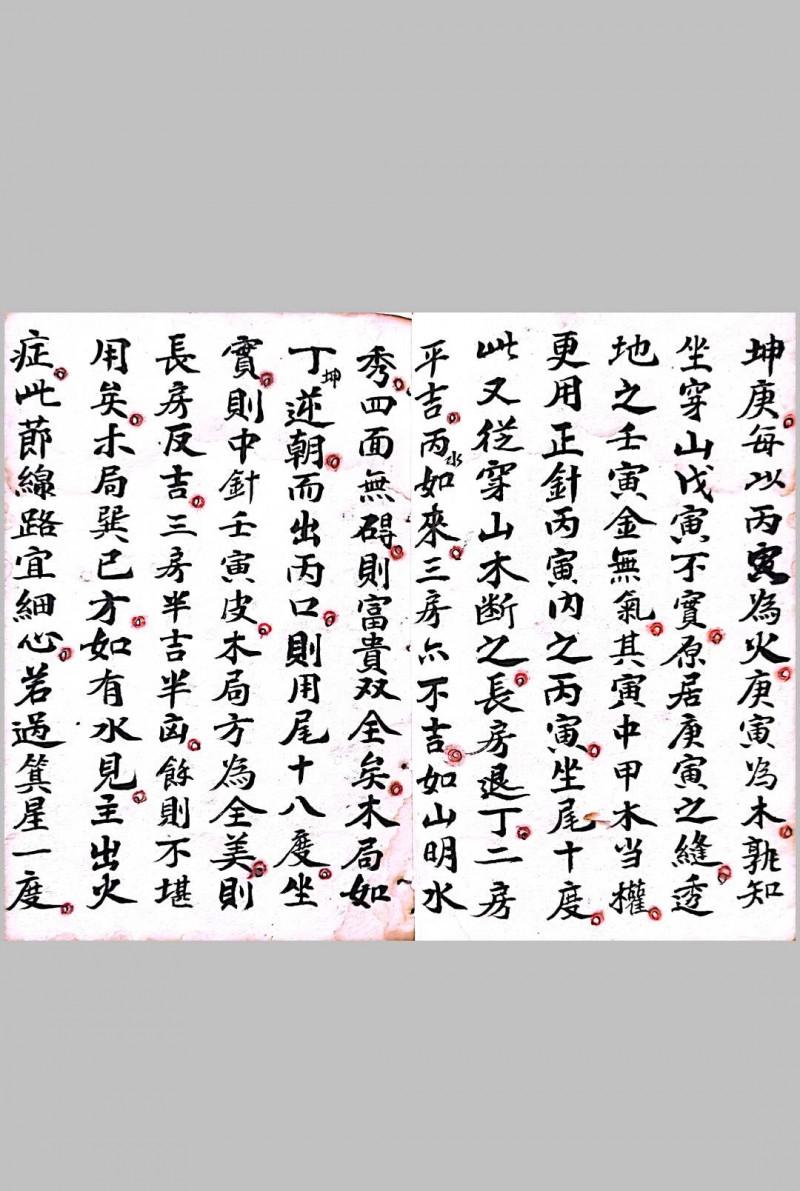 坤庚每以丙寅為火庚寅為木孰知
坐穿山戊寅不實原居庚寅之縫透
地之壬寅金無氣其寅中甲木当權
更用正針丙寅内之丙寅坐尾十度
此又從穿山木断之長房退丁二房
平吉丙水如來三房亦不吉如山明水
秀四面無碍則富貴双全矣木局如
丁坤逆朝而出丙口則用尾十八度坐
實則中針壬寅皮木局方為全美則
長房反吉三房半吉半凶餘則不堪
用矣木局巽巳方如有水見主出火
症此節線路宜細心若過箕星一度